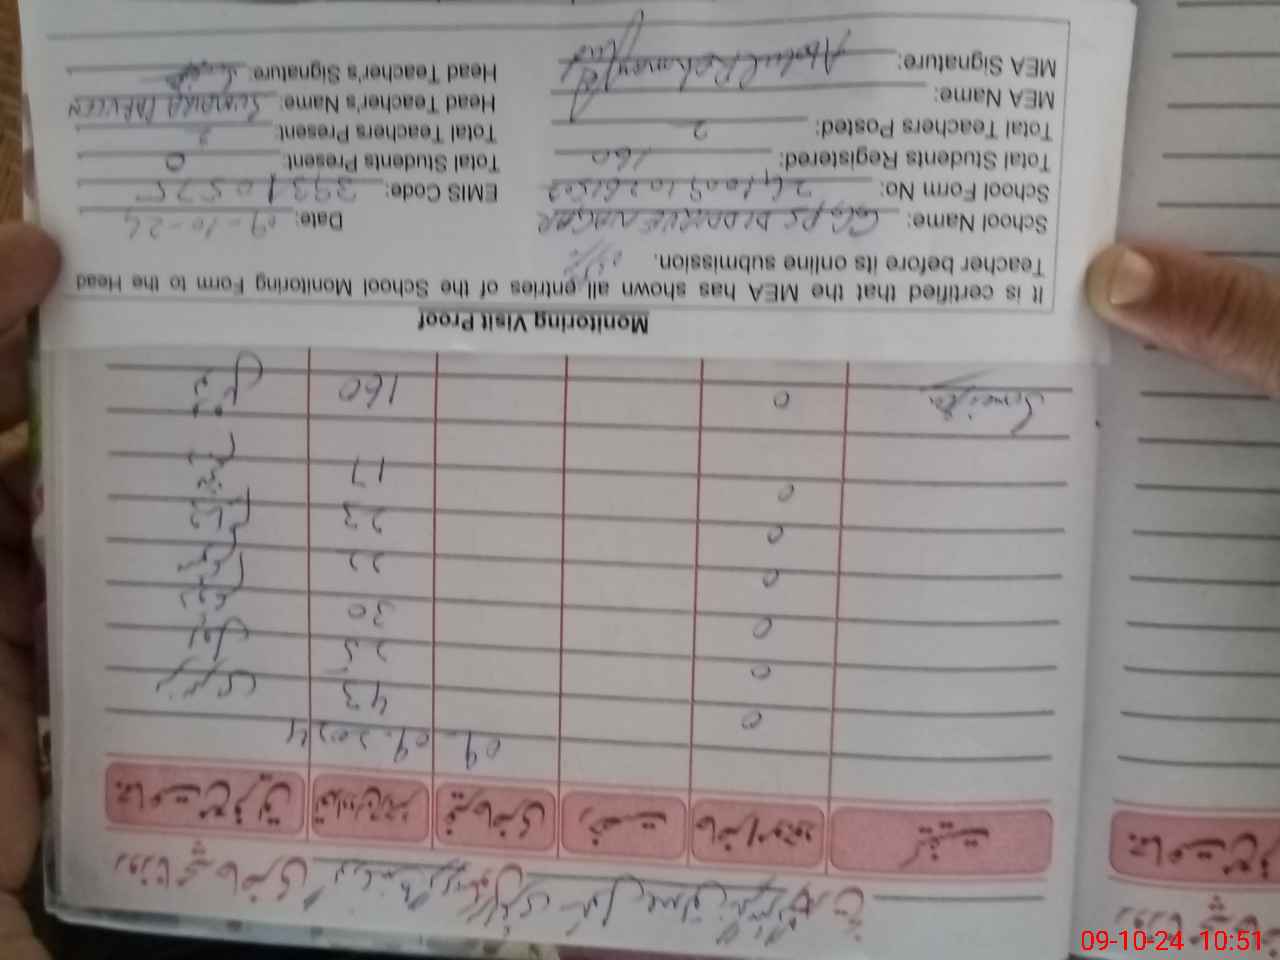 روزنامچہ حاضری
جماعت مع فریق
تعداد مندرجہ
غیر حاضری
رخصت
حاضر موجود
کیفیت
09-09-2024
نرسری 43 0
اول 25 0
دوم 30 0
سوم 22 0
چہارم 23 0
پنجم 17 0
160 0
Monitoring Visit Proof
It is certified that the MEA has shown all entries of the School Monitoring Form to the Head
Teacher before its online submission.
School Name: GGPS Date: 09-10-24
School Form No: EMIS Code: 39310575
Total Students Registered: 160 Total Students Present: 0
Total Teachers Posted: 2 Total Teachers Present: 2
MEA Name: Head Teacher's Name: SUMAIRA PARVEEN
MEA Signature: Abdul Rehman Head Teacher's Signature:
09-10-24 10:51